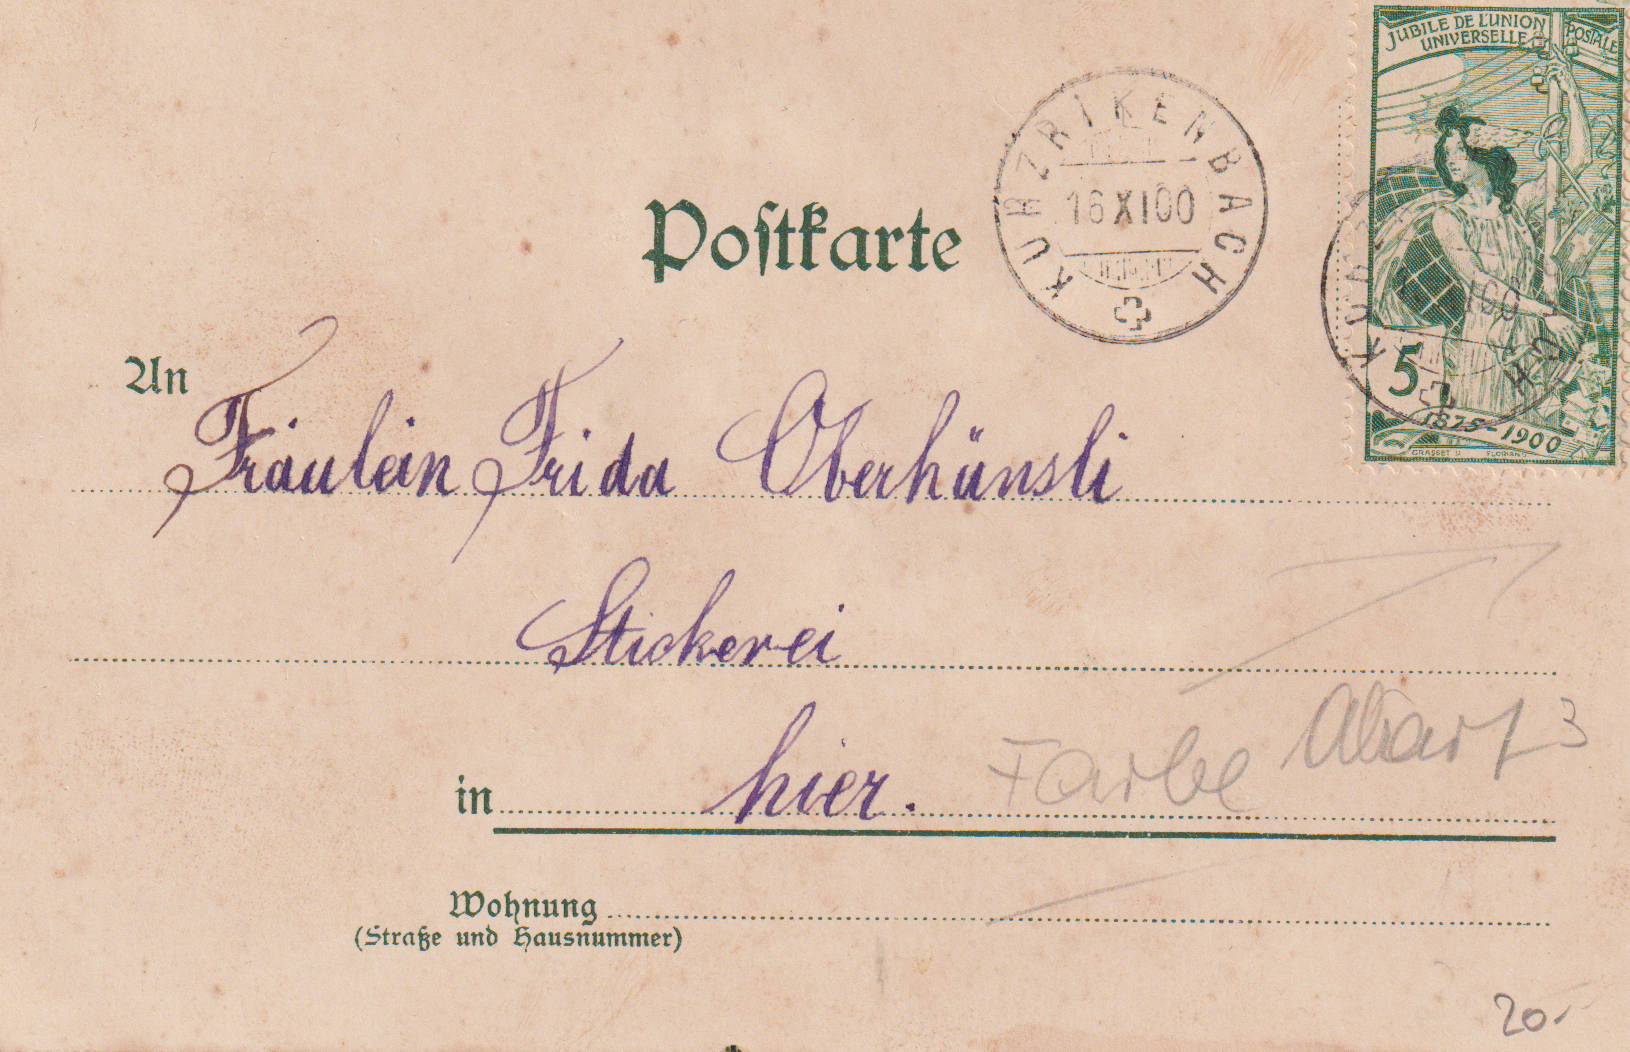 JUBILE DE L'UNION POSTALE
UNIVERSELLE
KURZRIKENBACH
16 XI 00
Postkarte
5
1875-1900
GRASSET
FLORIAN
An Fräulein Frida Oberhänsli
Stickerei
in hier.
Farbe Abart 3
Wohnung
(Straße und Hausnummer)
20.-